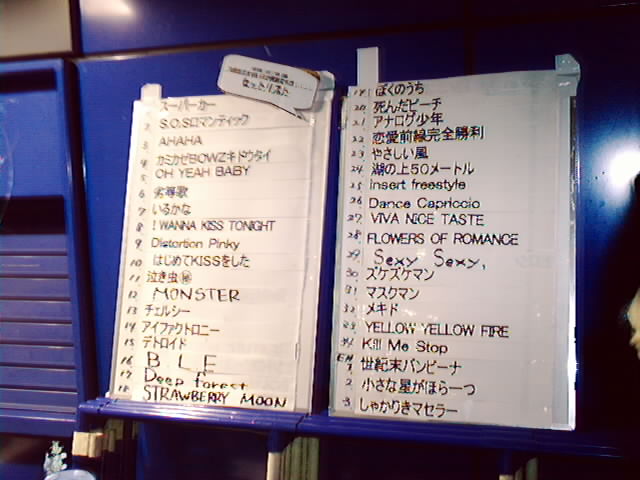 せっとりすと
1 スーパーカー
2 S.O.Sロマンティック
3 AHAHA
4 カミカゼBOWZキドウタイ
5 OH YEAH BABY
6 劣等歌
7 いるかな
8 I WANNA KISS TONIGHT
9 Distortion Pinky
10 はじめてKISSをした
11 泣き虫㊙
12 MONSTER
13 チェルシー
14 アイファクトロニー
15 デトロイド
16 BLE
17 Deep forest
18 STRAWBERRY MOON
19 ぼくのうち
20 死んだビーチ
21 アナログ少年
22 恋愛前線完全勝利
23 やさしい風
24 湖の上50メートル
25 insert freestyle
26 Dance Capriccio
27 VIVA NICE TASTE
28 FLOWERS OF ROMANCE
29 Sexy Sexy,
30 スケスケマン
31 マスクマン
32 メキド
33 YELLOW YELLOW FIRE
34 Kill Me Stop
EN
1 世紀末バンビーナ
2 小さな星がほら一つ
3 しゃかりきマセラー